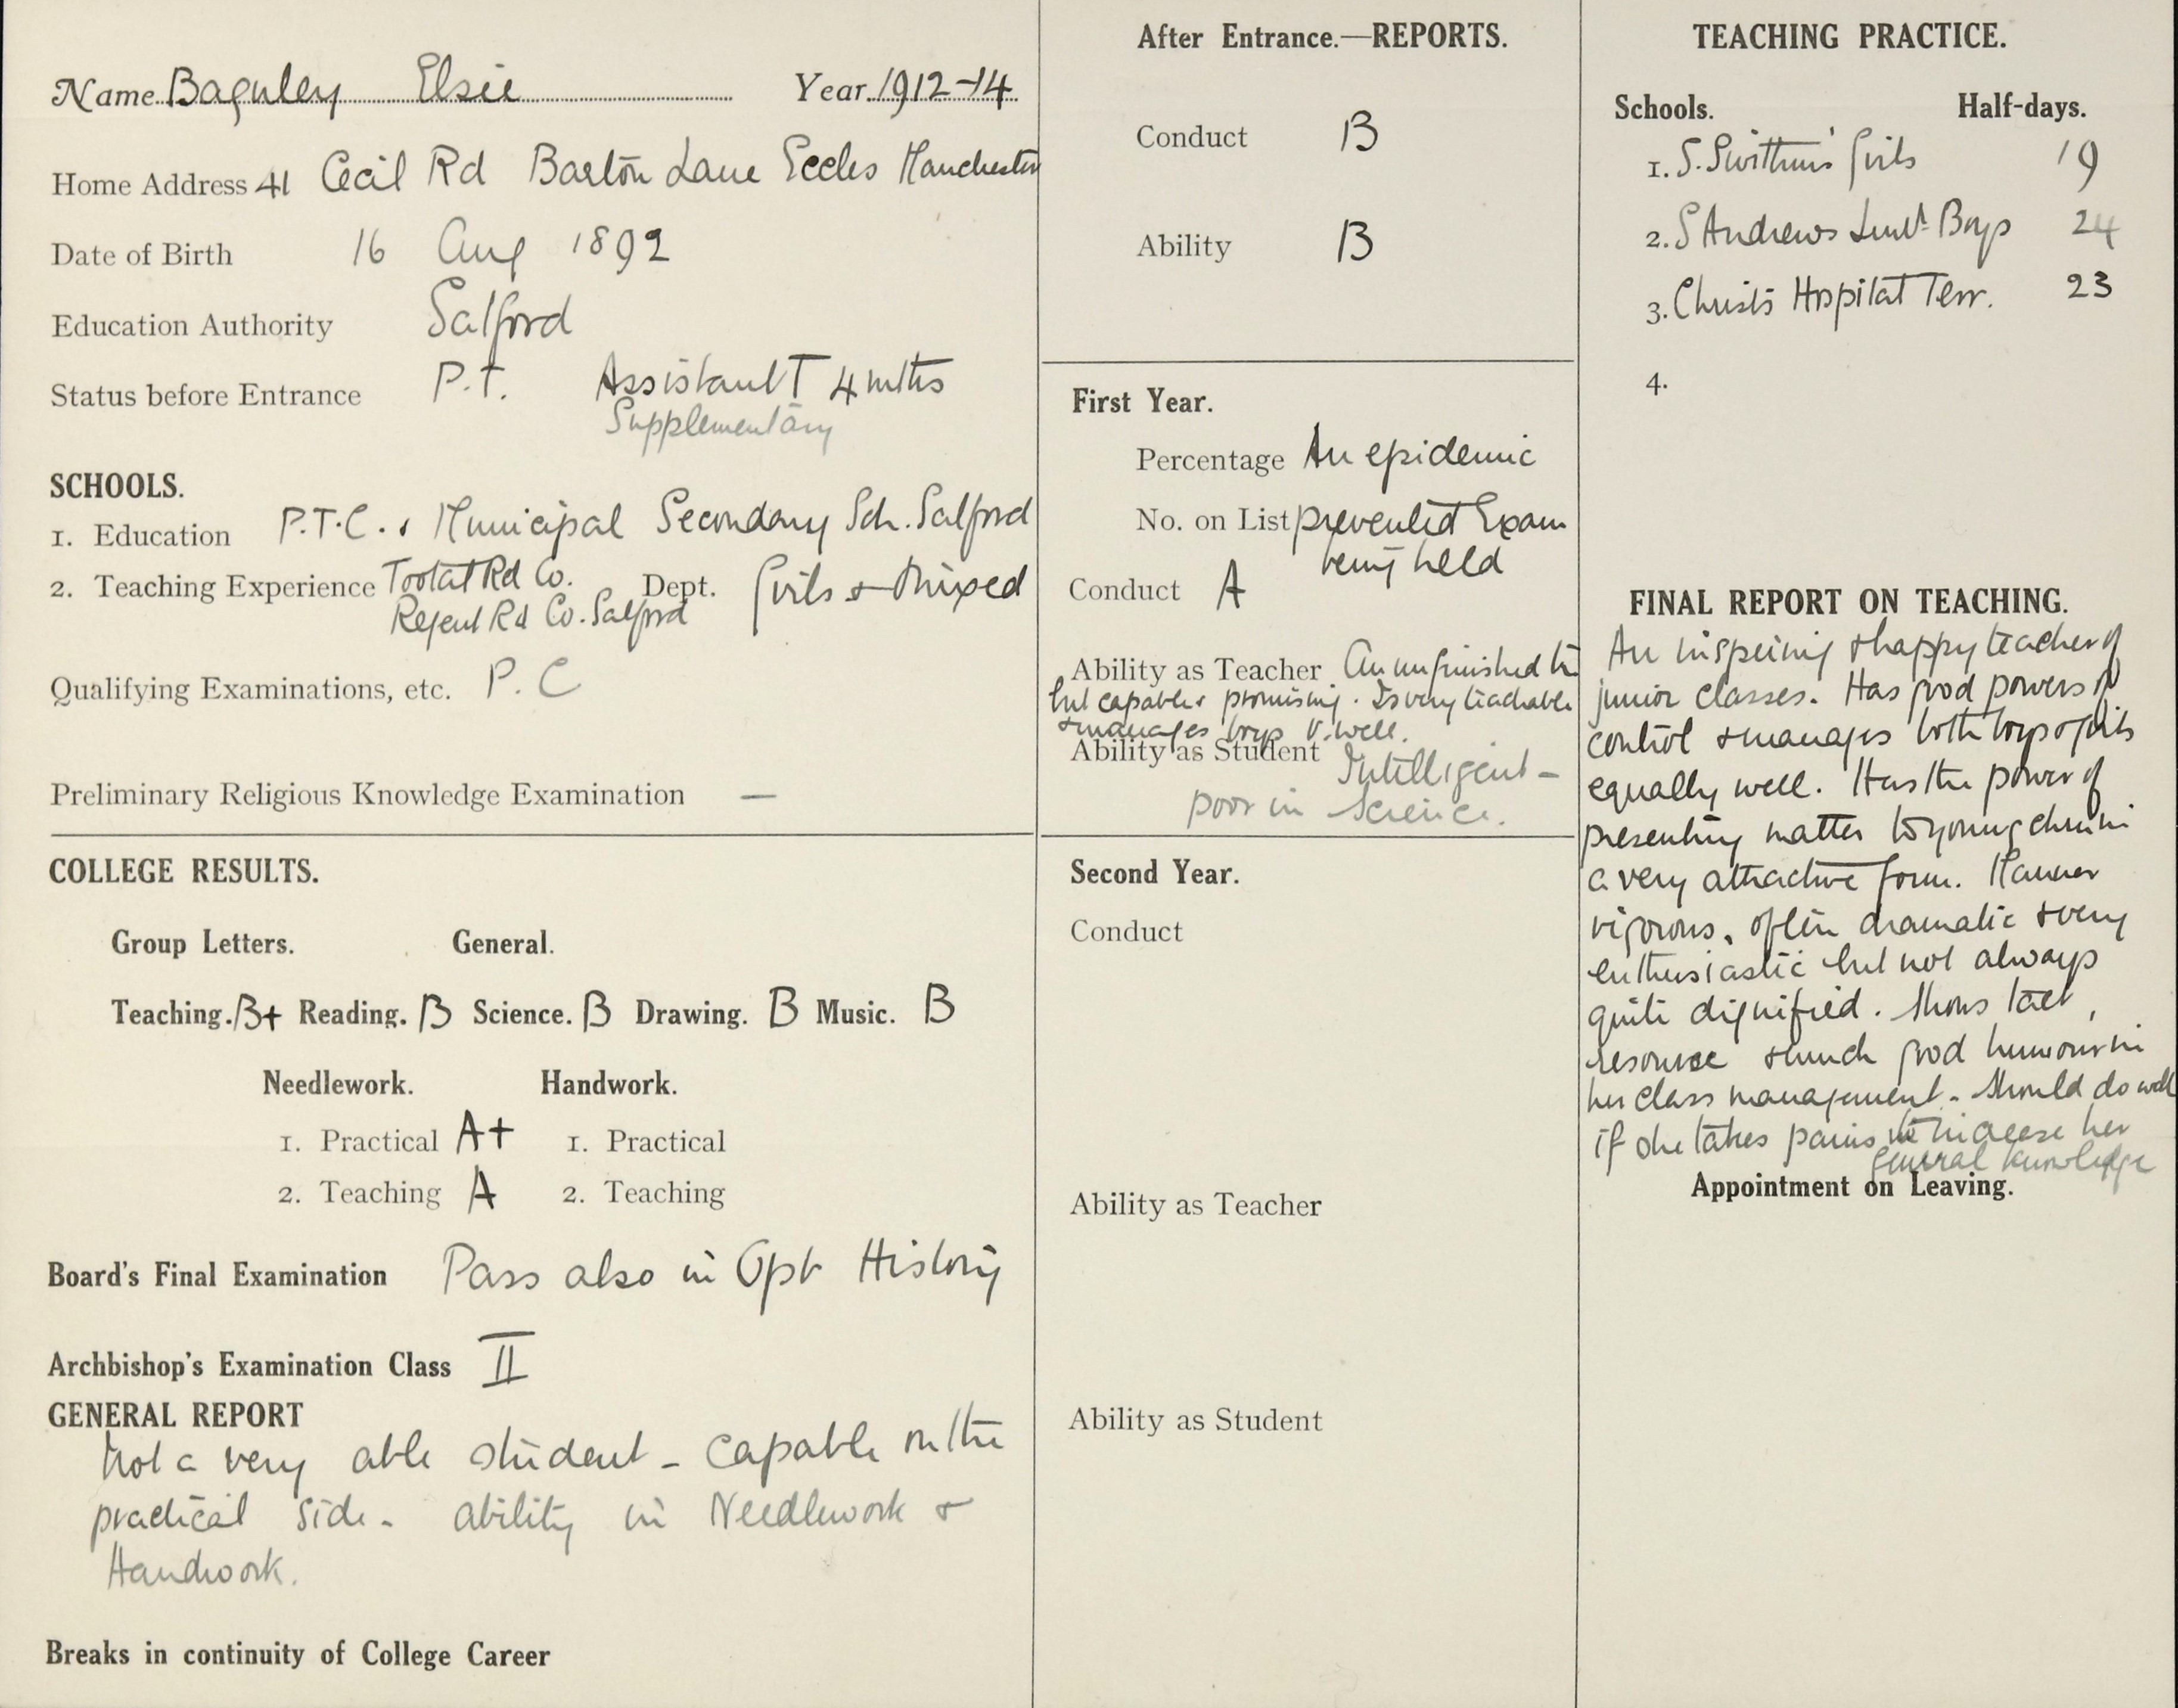 Name Baguley Elsie Year 1912-14
Home Address 41 Cecil Rd Barton Lane Eccles Manchester
Date of Birth 16 Aug 1892
Education Authority Salford
Status before Entrance P.T. Assistant T 4 mths
Supplementary
SCHOOLS.
1. Education P.T.C. & Municipal Secondary Sch. Salford
2. Teaching Experience Tootal Rd Co. Dept. Girls & Mixed
Regent Rd Co. Salford
Qualifying Examinations, etc. P.C
Preliminary Religious Knowledge Examination —
COLLEGE RESULTS.
Group Letters. General.
Teaching. B+ Reading. B Science. B Drawing. B Music. B
Needlework. Handwork.
1. Practical A+ 1. Practical
2. Teaching A 2. Teaching
Board's Final Examination Pass also in Opt History
Archbishop's Examination Class II
GENERAL REPORT
Not a very able student - capable on the
practical side - ability in Needlework &
Handwork.
Breaks in continuity of College Career
After Entrance.—REPORTS.
Conduct B
Ability B
First Year.
Percentage An epidemic
No. on List prevented Exam
being held
Conduct A
Ability as Teacher An unfinished tr
but capable & promising. Is very teachable
& manages boys v. well.
Ability as Student Intelligent -
poor in Science.
Second Year.
Conduct
Ability as Teacher
Ability as Student
TEACHING PRACTICE.
Schools. Half-days.
1. S. Swithin's Girls 19
2. S Andrews Boys 24
3. Christs Hospital Terr. 23
4.
FINAL REPORT ON TEACHING.
An inspiring & happy teacher of
junior classes. Has good powers of
control & manages both boys & girls
equally well. Has the power of
presenting matter to young chn in
a very attractive form. Manner
vigorous, often dramatic & very
enthusiastic but not always
quite dignified. Shows tact,
resource & much good humour in
her class management. Should do well
if she takes pains to increase her
general knowledge
Appointment on Leaving.